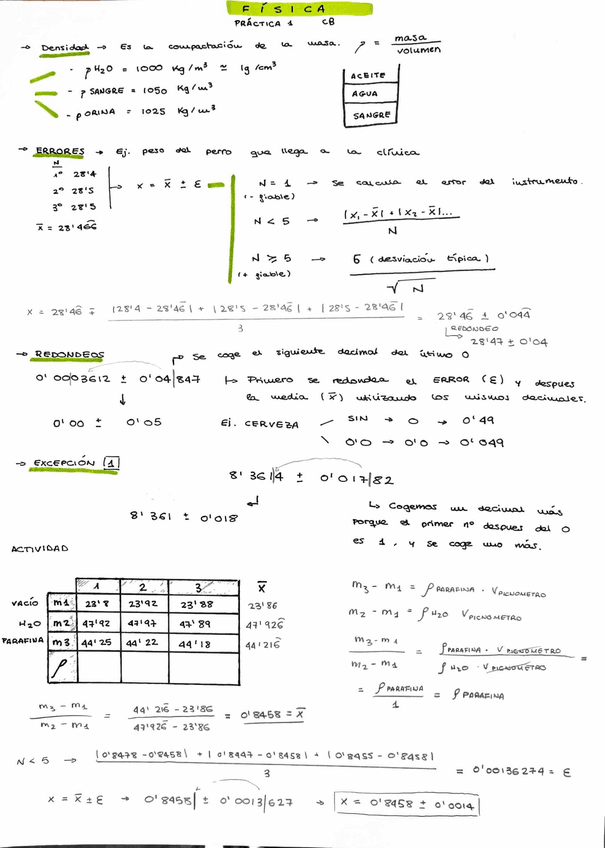 FÍSICA
PRÁCTICA 1 CB
→ Densidad → Es la compactación de la masa. ρ = masa / volumen
- ρ H₂O = 1000 Kg/m³ ≃ 1g/cm³
- ρ SANGRE = 1050 Kg/m³
- ρ ORINA = 1025 Kg/m³
ACEITE
AGUA
SANGRE
→ ERRORES → Ej. peso del perro que llega a la clínica
N
1º 28'4
2º 28'5
3º 28'5
x̄ = 28'466
→ x = x̄ ± ε
N = 1 → Se calcula el error del instrumento.
(- fiable)
N < 5 → |x₁ - x̄| + |x₂ - x̄|... / N
N ≥ 5 → б (desviación típica) / √N
(+ fiable)
x = 28'46 ∓ |28'4 - 28'46| + |28'5 - 28'46| + |28'5 - 28'46| / 3 = 28'46 ± 0'044
REDONDEO
28'47 ± 0'04
→ REDONDEOS
→ Se coge el siguiente decimal del último 0
0'00|03612 ± 0'04|847
↳ Primero se redondea el ERROR (ε) y despues
la media (x̄) utilizando los mismos decimales.
0'00 ± 0'05
Ej. CERVEZA
SIN → 0 → 0'49
0'0 → 0'0 → 0'049
→ EXCEPCIÓN 1
8'361|4 ± 0'017|82
8'361 ± 0'018
↳ Cogemos un decimal más
porque el primer nº despues del 0
es 1, y se coge uno más.
ACTIVIDAD
1 2 3 x̄
VACÍO m1 23'8 23'92 23'88 23'86
H₂O m2 47'92 47'97 47'89 47'926
PARAFINA m3 44'25 44'22 44'18 44'216
ρ
m₃ - m₁ = ρ PARAFINA · V PICNOMETRO
m₂ - m₁ = ρ H₂O V PICNOMETRO
m₃ - m₁ / m₂ - m₁ = ρ PARAFINA · V PICNOMETRO / ρ H₂O · V PICNOMETRO =
= ρ PARAFINA / 1 = ρ PARAFINA
m₃ - m₁ / m₂ - m₁ = 44'216 - 23'86 / 47'926 - 23'86 = 0'8458 = x̄
N < 5 → |0'8478 - 0'8458| + |0'8447 - 0'8458| + |0'8455 - 0'8458| / 3 = 0'00136274 = ε
x = x̄ ± ε → 0'8458| ± 0'0013|627 → x = 0'8458 ± 0'0014